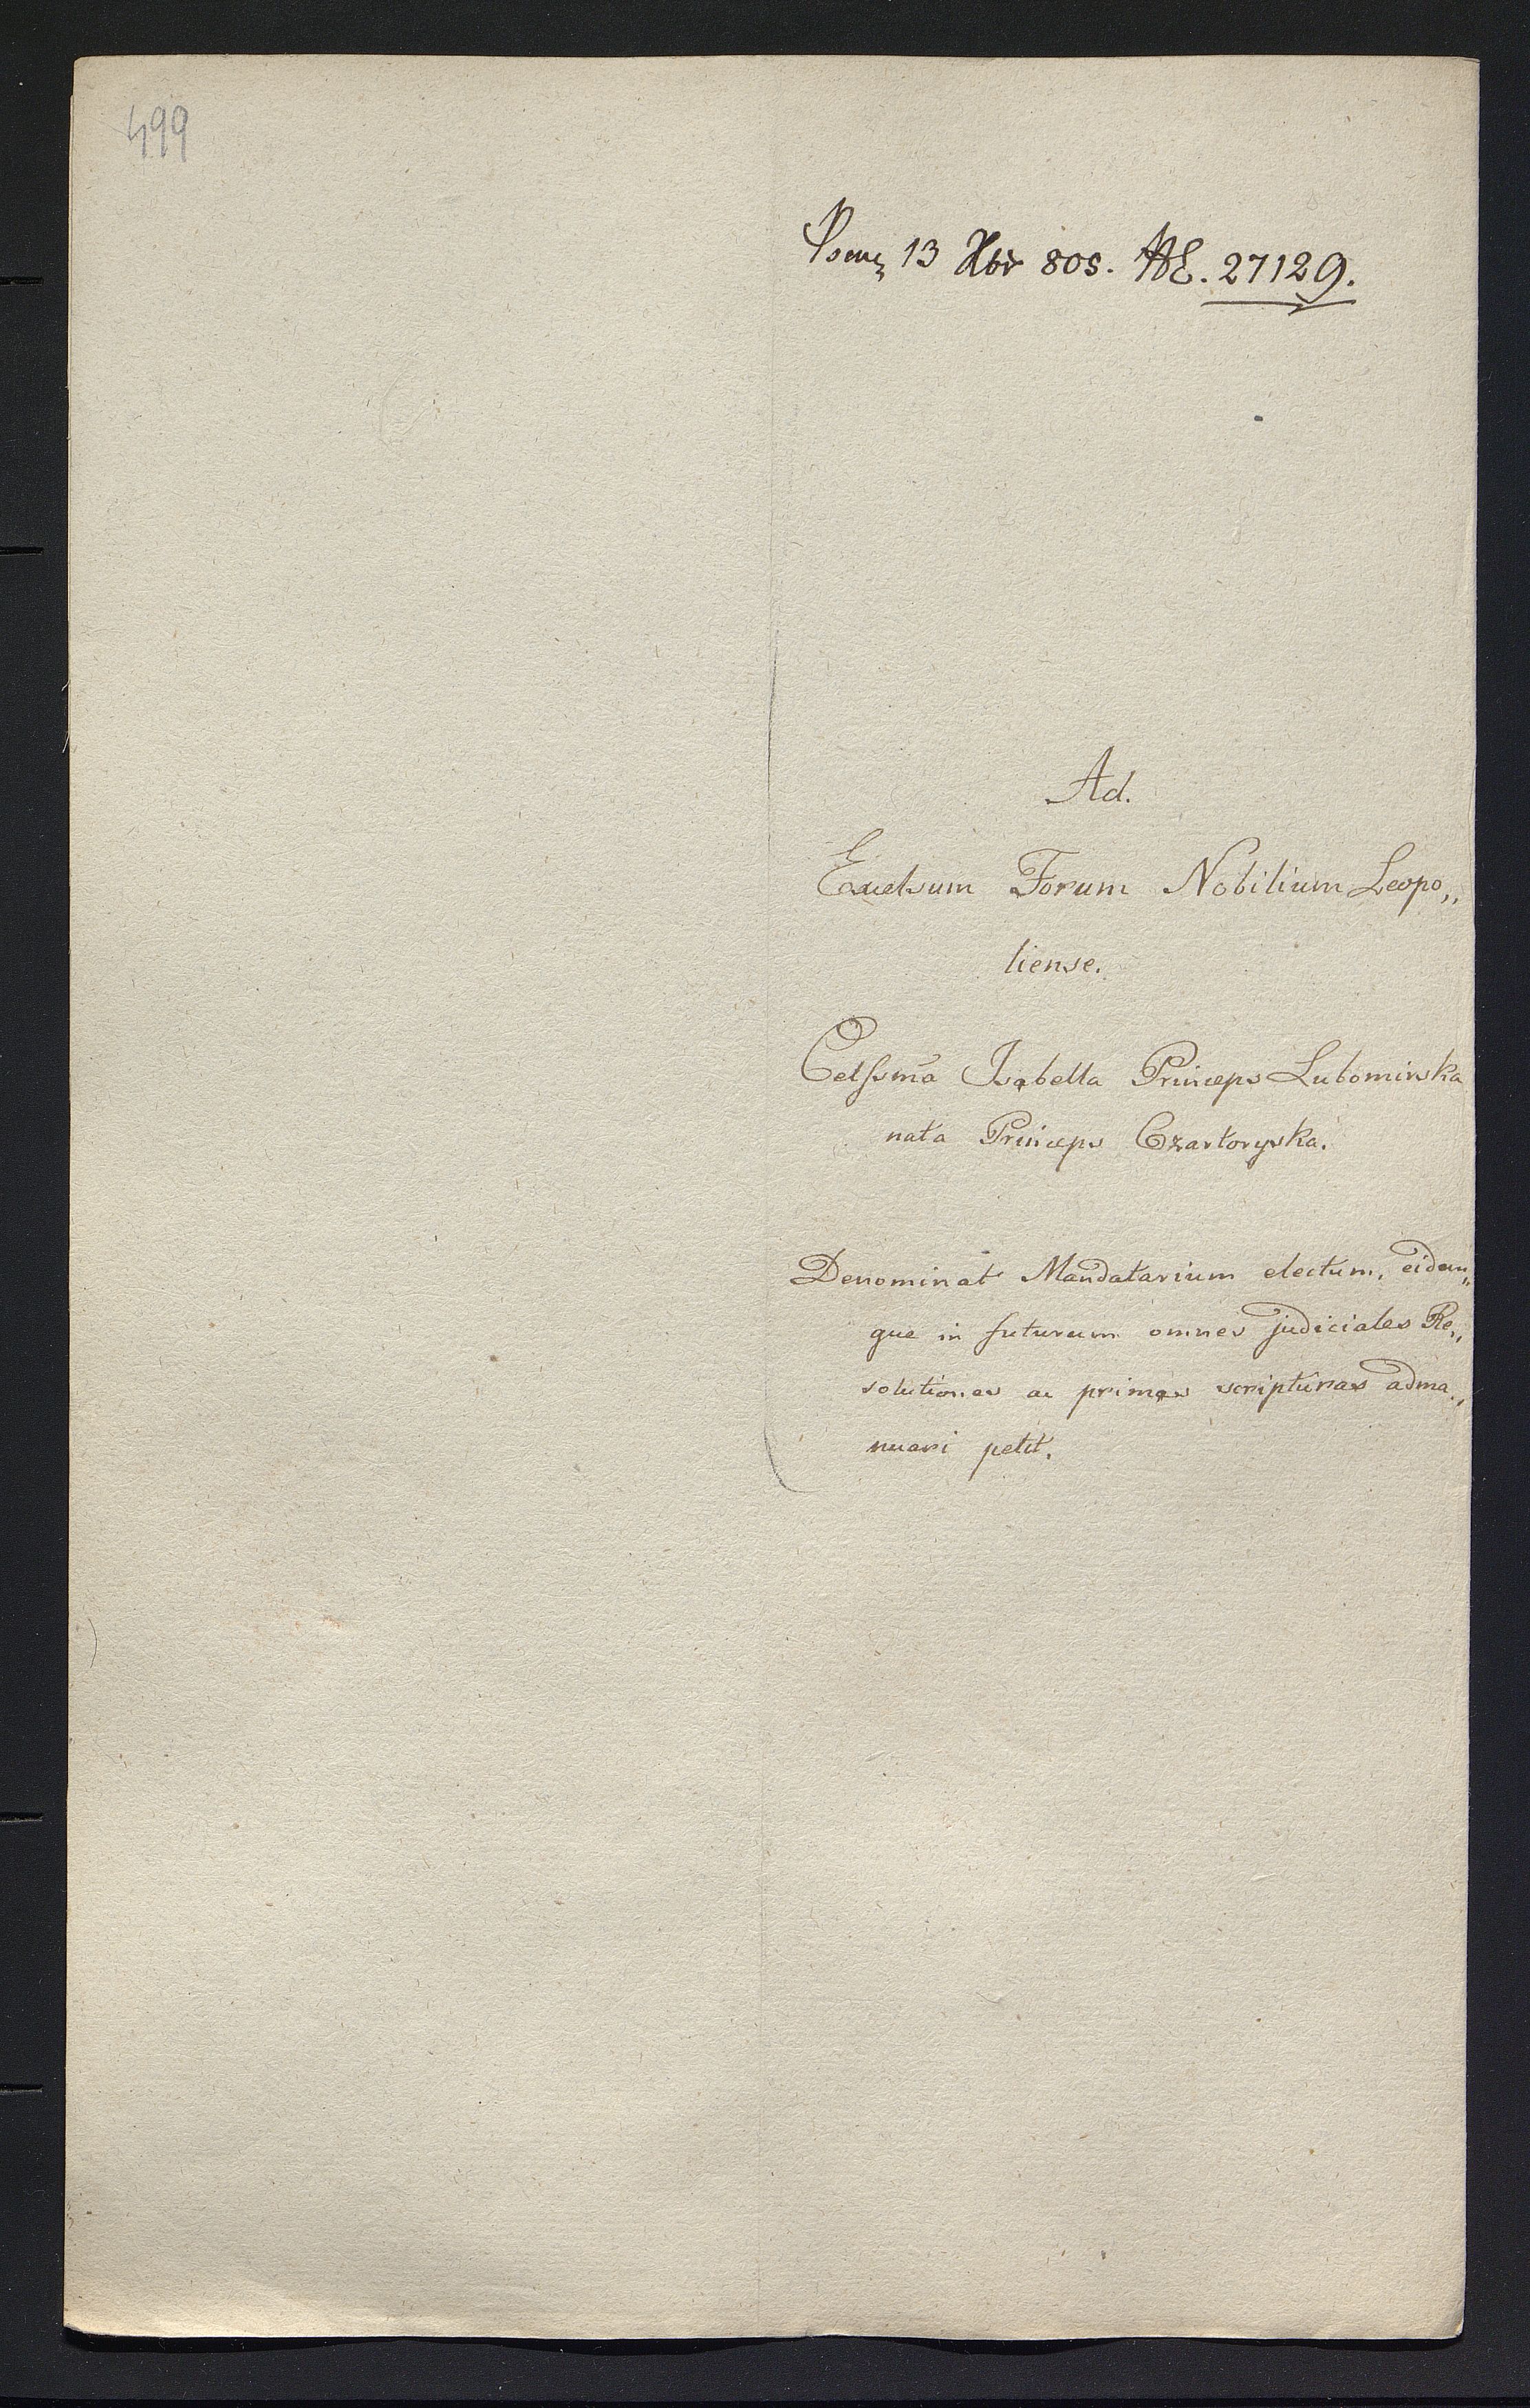 499
13 Xbr 805. NE. 27129.
Ad.
Excelsum Forum Nobilium Leopo„
liense.
Celssma Isabella Princeps Lubomirska
nata Princeps Czartoryska.
Denominat Mandatarium electum, eidem„
que in futurum omnes judiciales Re„
solutiones ac primas scripturas adma„
nuari petit.